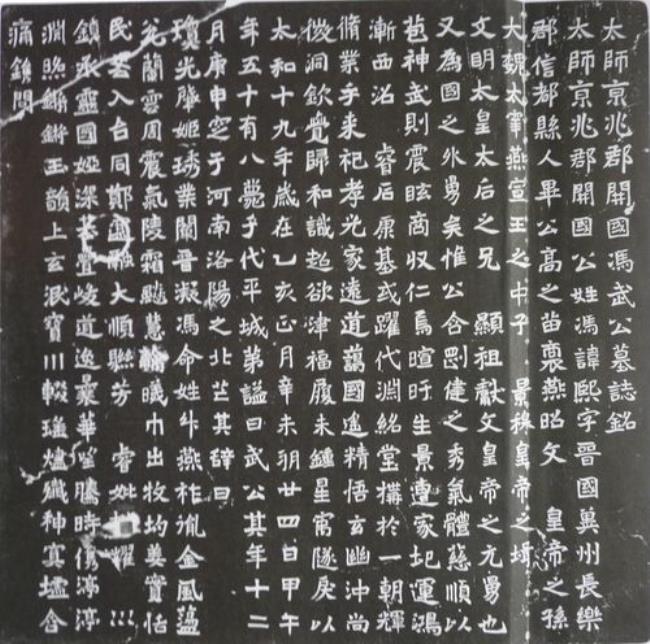 太師京兆郡開國馮武公墓誌銘
太師京兆郡開國公姓馮諱熙字晉國冀州長樂
郡信都縣人畢公高之苗裔燕昭文 皇帝之孫
大魏太宰燕宣王之中子 景穆皇帝之壻
文明太皇太后之兄 顯祖獻文皇帝之元舅也
又為國之外舅矣惟公含剛健之秀氣體慈順以
苞神武則震眩商収仁焉暄旴生景遭家圯運鴻
漸西沼 睿后康基或躍代淵紹堂構於一朝輝
脩業乎来祀孝光家遠道藹國遙精悟玄幽沖尚
微洞欽覺歸和識超欲津福履未鍾星寓隧戾以
太和十九年歲在乙亥正月辛未朔廿四日甲午
年五十有八薨于代平城苐謚曰武公其年十二
月庚申窆于河南洛陽之北芒其辭曰
瓊光肇姬琇業闡晉凝馮命姓弈燕祚胤金風蘊
蘭雲周震氣陵霜飈慧曦巾出牧均姜實恬
民苦入台同鄭融大順聯芳 睿妣耀
鎮承靈國婭深基疊峻道逸曩華騰時儁渟渟
淵照鏘鏘玉韻上玄泯寶川輟瑤爐殲神寘壚含
痛鎸問